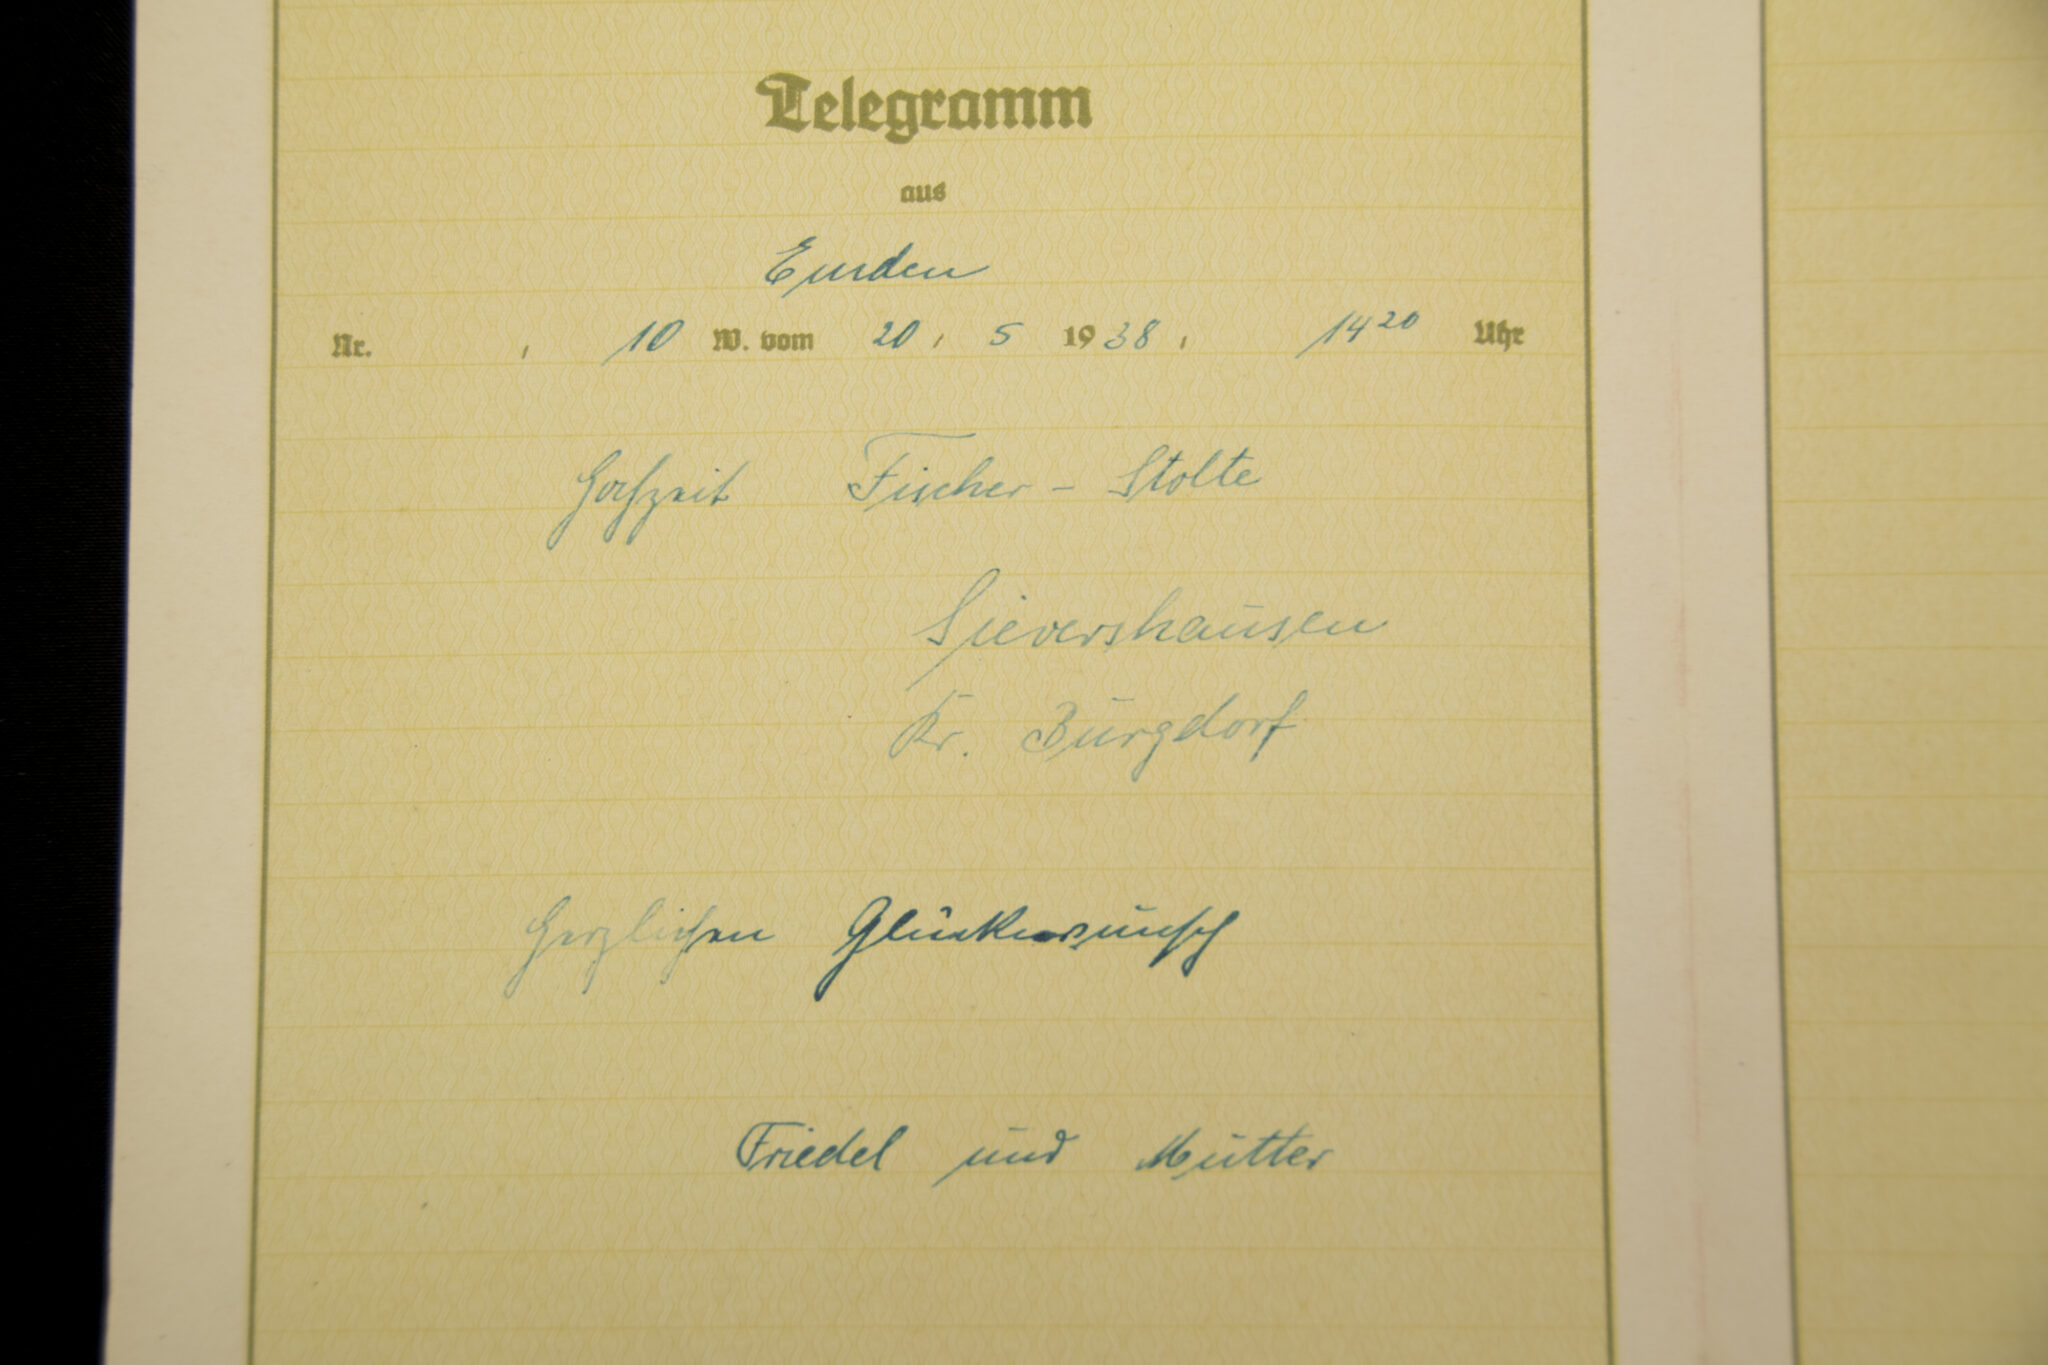 Telegramm
aus
Emden
Nr. , 10 W. vom 20 , 5 1938 , 14 20 Uhr
Hochzeit Fischer - Stolte
Sievershausen
Kr. Burgdorf
Herzlichen Glückwunsch
Friedel und Mutter